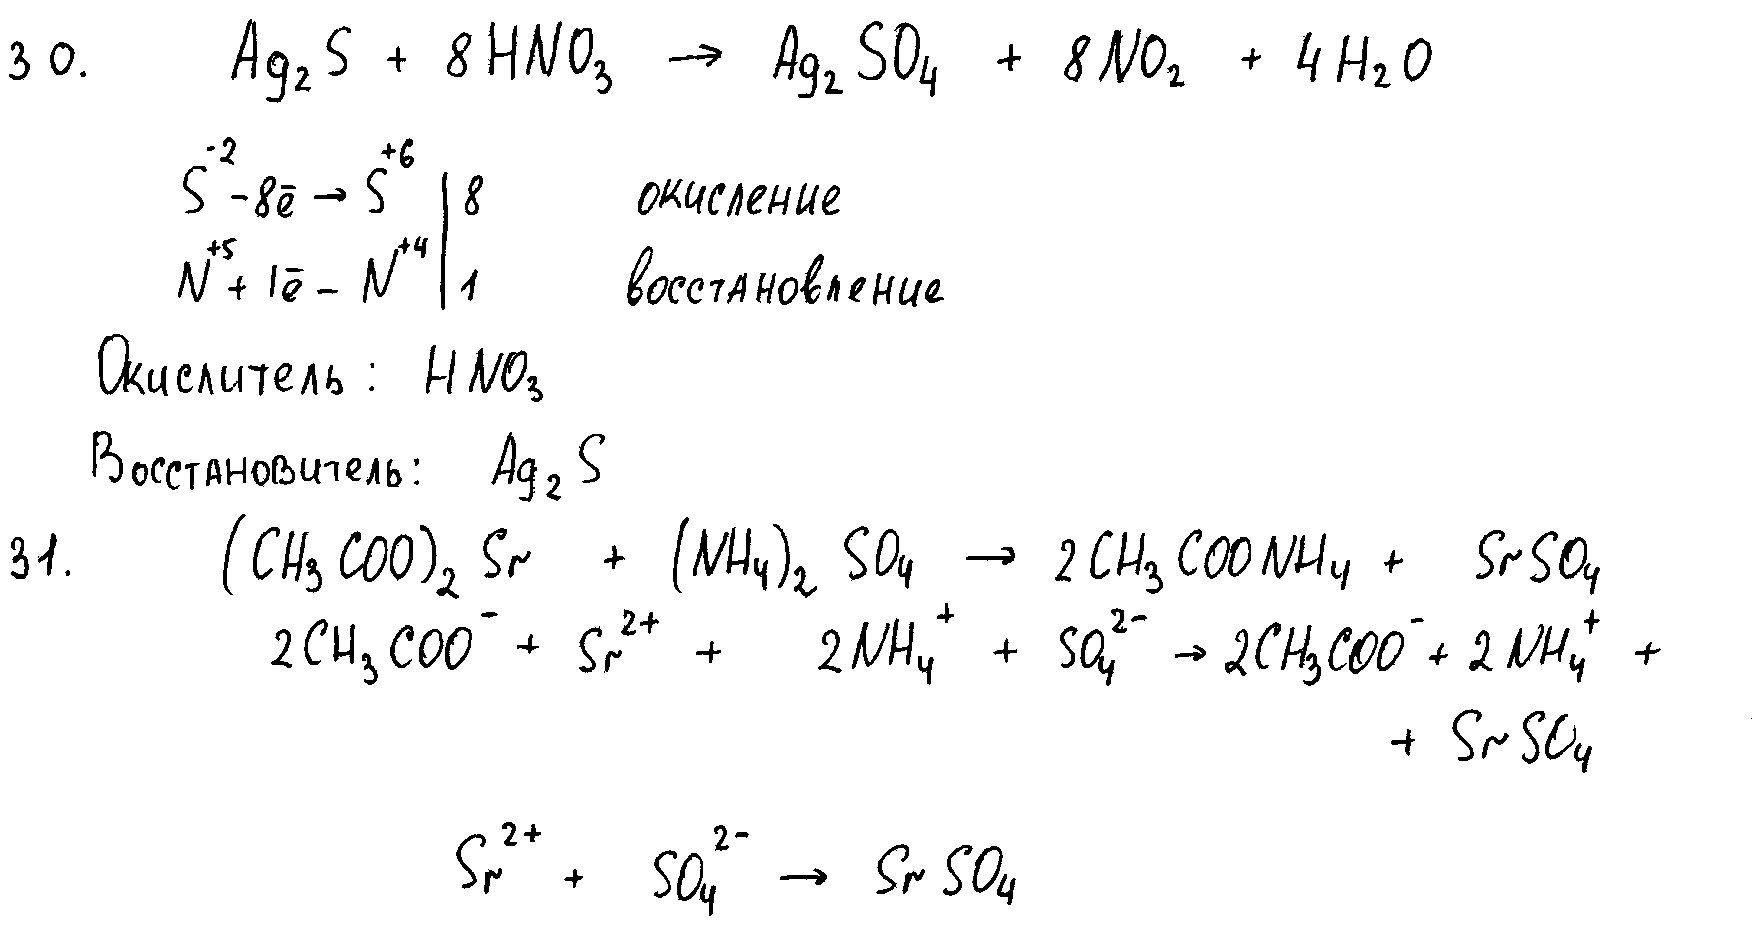 30. Ag₂S + 8HNO₃ → Ag₂SO₄ + 8NO₂ + 4H₂O
S⁻² -8ē → S⁺⁶ | 8 окисление
N⁺⁵ + 1ē - N⁺⁴ | 1 восстановление
Окислитель: HNO₃
Восстановитель: Ag₂S
31. (CH₃COO)₂Sr + (NH₄)₂SO₄ → 2CH₃COONH₄ + SrSO₄
2CH₃COO⁻ + Sr²⁺ + 2NH₄⁺ + SO₄²⁻ → 2CH₃COO⁻ + 2NH₄⁺ +
+ SrSO₄
Sr²⁺ + SO₄²⁻ → SrSO₄